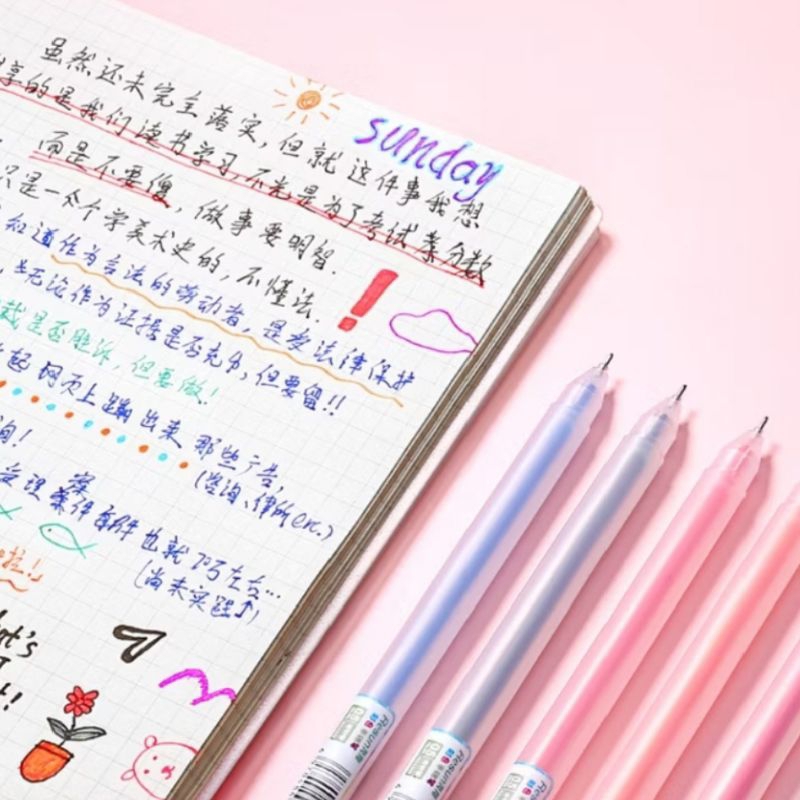 虽然还未完全落实,但就这件事我想
享的是我们读书学习不光是为了考试拿分数
而是不要傻,做事要明智.
只是一个学美术史的,不懂法.
知道作为合法的劳动者,是受法律保护
无论作为证据是否充分,但要留!!
裁是否胜诉,但要做!
网页上蹦出来那些广告,
询!
(咨询、律所etc.)
也就75左右...
(尚未实践↑)
sunday
啦!」
Resun
Resun
Resun